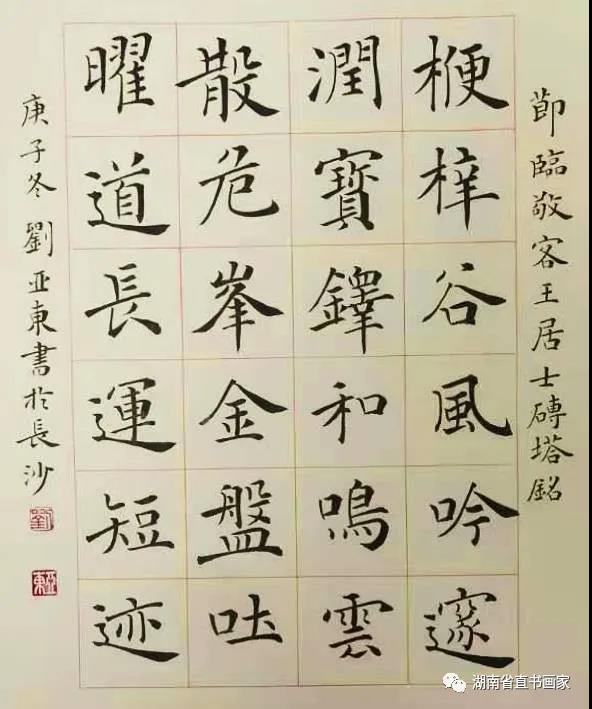 莭臨敬客王居士磚塔銘
楩梓谷風吟邃
潤寶鐸和鳴雲
散危峯金盤吐
曜道長運短迹
庚子冬劉亚東書於長沙
劉
亞東
湖南省直书画家